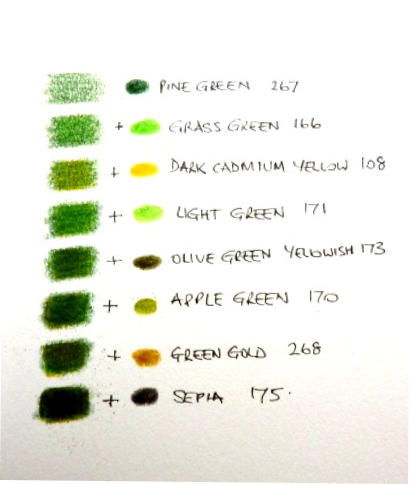 PINE GREEN 267
+ GRASS GREEN 166
+ DARK CADMIUM YELLOW 108
+ LIGHT GREEN 171
+ OLIVE GREEN YELLOWISH 173
+ APPLE GREEN 170
+ GREEN GOLD 268
+ SEPIA 175.